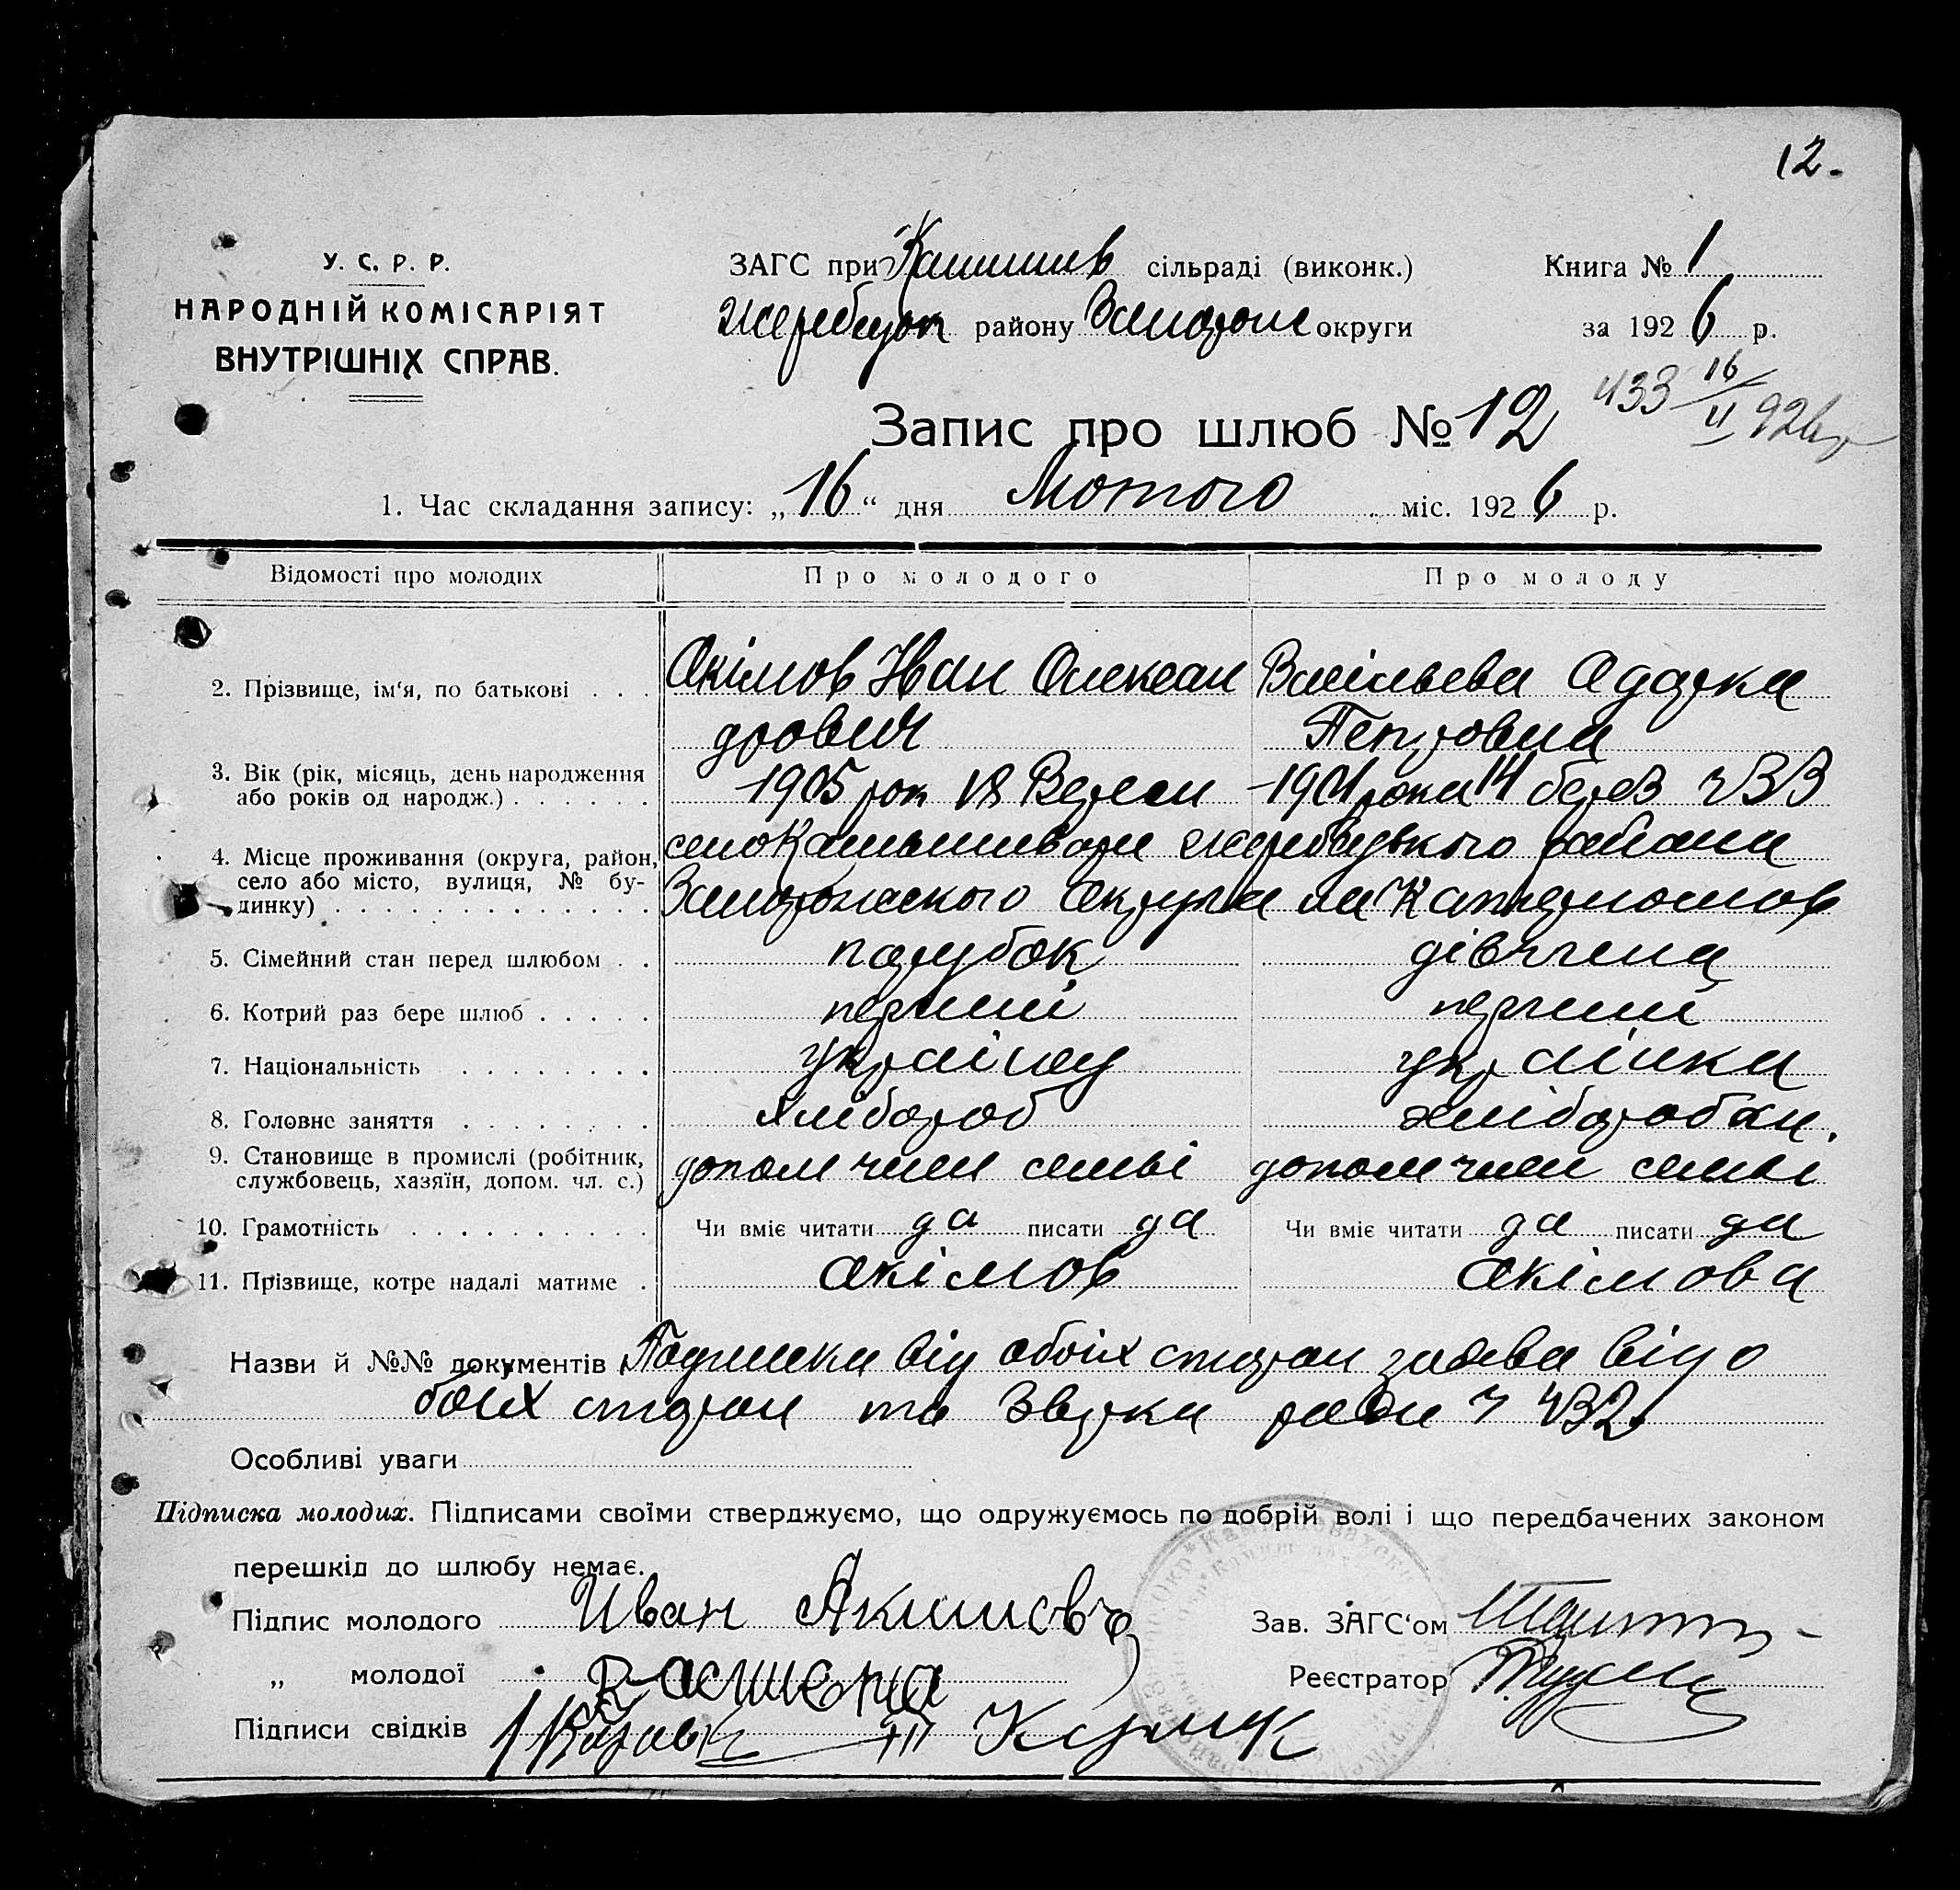 12.
У. С. Р. Р.
НАРОДНІЙ КОМІСАРІЯТ
ВНУТРІШНІХ СПРАВ.
ЗАГС при Камишев сільраді (виконк.)
Жеребецьк району Запорож округи
Книга № 1
за 1926 р.
433 16/II 926 р
Запис про шлюб № 12
1. Час складання запису: „16“ дня Лютого міс. 1926 р.
Відомості про молодих Про молодого Про молоду
2. Прізвище, ім‘я, по батькові . . . Акімов Іван Олексан Васільєва Одарка
дрович Петровна
3. Вік (рік, місяць, день народження
або років од народж.) . . . . . . 1905 рок 18 Верезн 1901 рока 14 берез
4. Місце проживання (округа, район,
село або місто, вулиця, № бу-
динку) . . . . . . . . . . . . .
село Камышеваха Жеребецького района
Запорожского Округа
5. Сімейний стан перед шлюбом . . парубок дівчена
6. Котрий раз бере шлюб . . . . . перший перший
7. Національність . . . . . . . . українец українка
8. Головне заняття . . . . . . . . хлібороб хліборобка.
9. Становище в промислі (робітник,
службовець, хазяїн, допом. чл. с.) допом член семьі допом член семьі
10. Грамотність . . . . . . . . . . Чи вміє читати да писати да Чи вміє читати да писати да
11. Прізвище, котре надалі матиме . Акімов Акімова
Назви й №№ документів Подписки від обоіх сторон заява від о
боіх сторон та ради 432
Особливі уваги
Підписка молодих. Підписами своїми стверджуємо, що одружуємось по добрій волі і що передбачених законом
перешкід до шлюбу немає.
Підпис молодого Иван Акимовъ
„ молодої
Підписи свідків
Зав. ЗАГС‘ом
Реєстратор